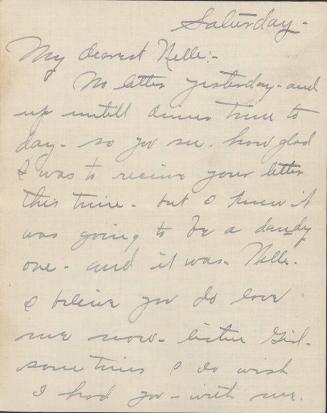 Saturday-
My dearest Nelle:-
No letter yesterday- and
up untill dinner time to
day- so you see how glad
I was to receive your letter
this time- but I knew it
was going to be a dandy
one- and it was- Nelle-
I believe you do love
me now- little Girl-
sometimes I do wish
I had you- with me.